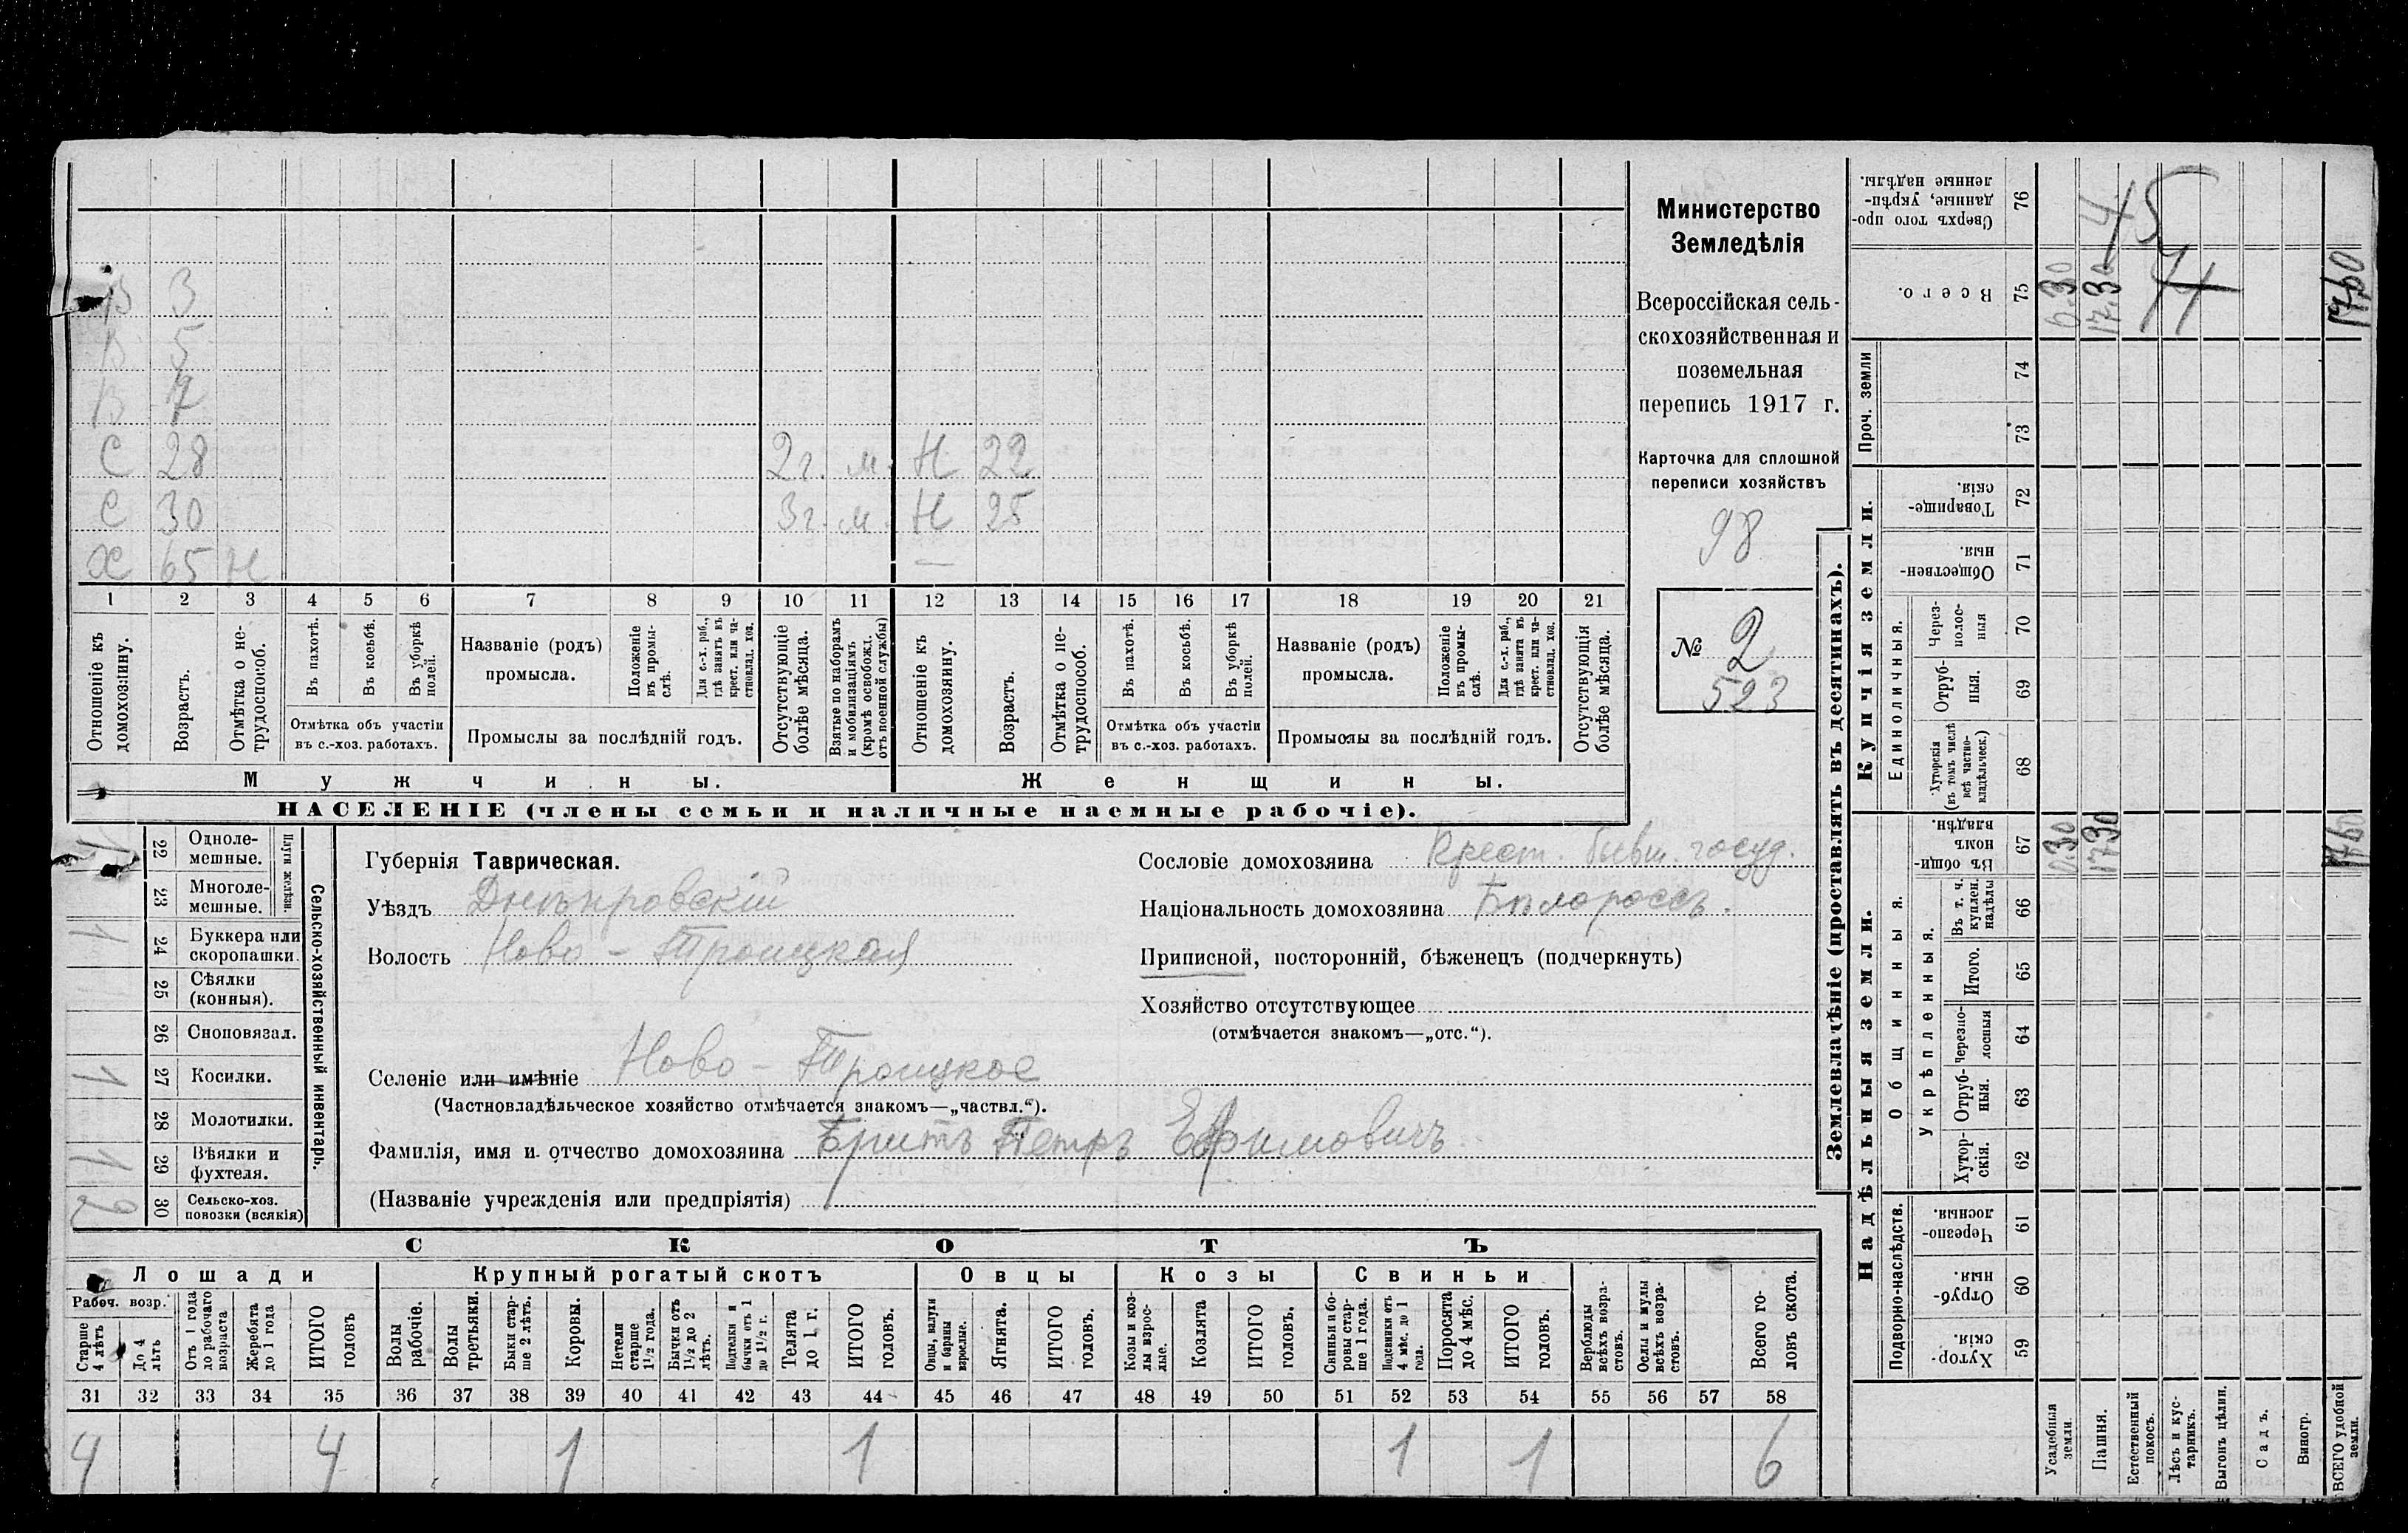 В 3
В 5
В 7
С 28 2г. м. Н 22
С 30 3г. м. Н 25
Х 65 Н —
1 2 3 4 5 6 7 8 9 10 11 12 13 14 15 16 17 18 19 20 21
Отношеніе къ домохозяину.
Возрастъ.
Отмѣтка о нетрудоспособ.
Въ пахотѣ.
Въ косьбѣ.
Въ уборкѣ полей.
Отмѣтка объ участіи въ с.-хоз. работахъ.
Названіе (родъ) промысла.
Положеніе въ промыслѣ.
Для с.-х. раб., гдѣ занятъ въ крест. или частновлад. хоз.
Промыслы за послѣдній годъ.
Отсутствующіе болѣе мѣсяца.
Взятые по наборамъ и мобилизаціямъ (кромѣ освобожд. отъ военной службы)
Отношеніе къ домохозяину.
Возрастъ.
Отмѣтка о нетрудоспособ.
Въ пахотѣ.
Въ косьбѣ.
Въ уборкѣ полей.
Отмѣтка объ участіи въ с.-хоз. работахъ.
Названіе (родъ) промысла.
Положеніе въ промыслѣ.
Для с.-х. раб., гдѣ занята въ крест. или частновлад. хоз.
Промыслы за послѣдній годъ.
Отсутствующія болѣе мѣсяца.
Мужчины.
Женщины.
НАСЕЛЕНІЕ (члены семьи и наличные наемные рабочіе).
Министерство
Земледѣлія
Всероссійская сель-
скохозяйственная и
поземельная
перепись 1917 г.
Карточка для сплошной
переписи хозяйствъ
98
№ 2
523
Сельско-хозяйственный инвентарь.
Плуги желѣзн.
22 Одноле-мешные. 1
23 Многоле-мешные.
24 Буккера или скоропашки. 1
25 Сѣялки (конныя).
26 Сноповязал.
27 Косилки. 1
28 Молотилки.
29 Вѣялки и фухтеля. 1
30 Сельско-хоз. повозки (всякія) 2
Губернія Таврическая.
Уѣздъ Днѣпровскій
Волость Ново-Троицкая
Селеніе или имѣніе Ново-Троицкое
(Частновладѣльческое хозяйство отмѣчается знакомъ—„частвл.“).
Фамилія, имя и отчество домохозяина Бритъ Петръ Ефимовичъ
(Названіе учрежденія или предпріятія)
Сословіе домохозяина Крест. бывш. госуд.
Національность домохозяина Бѣлороссъ.
Приписной, посторонній, бѣженецъ (подчеркнуть)
Хозяйство отсутствующее
(отмѣчается знакомъ—„отс.“).
СКОТЪ
Лошади
Крупный рогатый скотъ
Овцы
Козы
Свиньи
Рабоч. возр.
Старше 4 лѣтъ
До 4 лѣтъ
Отъ 1 года до рабочаго возраста
Жеребята до 1 года
ИТОГО головъ
Волы рабочіе.
Волы третьяки.
Быки старше 2 лѣтъ.
Коровы.
Нетели старше 1½ года.
Бычки отъ 1½ до 2 лѣтъ.
Подтелки и бычки отъ 1 до 1½ г.
Телята до 1 г.
ИТОГО головъ.
Овцы, валухи и бараны взрослые.
Ягнята.
ИТОГО головъ.
Козы и козлы взрослые.
Козлята
ИТОГО головъ.
Свиньи и боровы старше 1 года.
Подсвинки отъ 4 мѣс. до 1 года.
Поросята до 4 мѣс.
ИТОГО головъ.
Верблюды всѣхъ возрастовъ.
Ослы и мулы всѣхъ возрастовъ.
Всего головъ скота.
31 32 33 34 35 36 37 38 39 40 41 42 43 44 45 46 47 48 49 50 51 52 53 54 55 56 57 58
4 4 1 1 1 1 6
Землевладѣніе (проставлять въ десятинахъ).
Надѣльныя земли.
Купчія земли.
Проч. земли
Сверхъ того проданные, укрѣпленные надѣлы. 76
Всего. 75
74
73
Товарищескія. 72
Общественныя. 71
Единоличныя.
Черезполосныя 70
Отрубныя. 69
Хуторскія (въ томъ числѣ всѣ частновладѣльческ.) 68
Общинныя.
Въ общиномъ владѣн. 67
Въ т. ч. куплен. надѣлы 66
Укрѣпленныя.
Итого. 65
Черезполосныя 64
Отрубныя. 63
Хуторскія. 62
Подворно-наслѣдств.
Черезполосныя. 61
Отрубныя. 60
Хуторскія. 59
Усадебныя земли. 0.30 0.30
Пашня. 17.30 17.30
Естественный покосъ.
Лѣсъ и кустарникъ.
Выгонъ цѣлин.
Садъ.
Виногр.
ВСЕГО удобной земли. 17.60 17.60
45
44